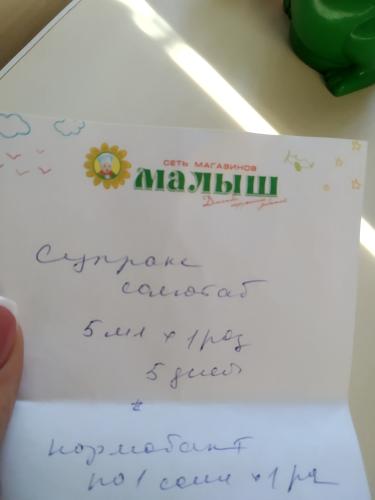 СЕТЬ МАГАЗИНОВ
МАЛЫШ
Супракс
солютаб
5 мл х 1 раз
5 дней
нормобакт
по 1 саше х 1 ра